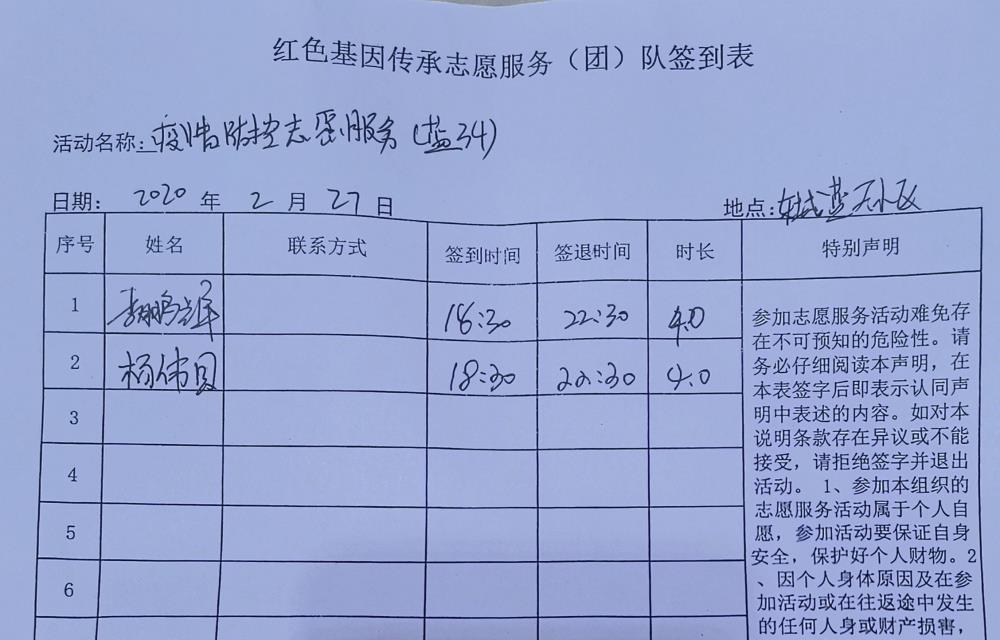 红色基因传承志愿服务（团）队签到表
活动名称:疫情防控志愿服务(蓝34)
日期: 2020 年 2 月 27 日 地点:
序号 姓名 联系方式 签到时间 签退时间 时长 特别声明
1 18:30 22:30 4.0
2 杨伟国 18:30 22:30 4.0
3
4
5
6
参加志愿服务活动难免存
在不可预知的危险性。请
务必仔细阅读本声明，在
本表签字后即表示认同声
明中表述的内容。如对本
说明条款存在异议或不能
接受，请拒绝签字并退出
活动。 1、参加本组织的
志愿服务活动属于个人自
愿，参加活动要保证自身
安全，保护好个人财物。2
、因个人身体原因及在参
加活动或在往返途中发生
的任何人身或财产损害，